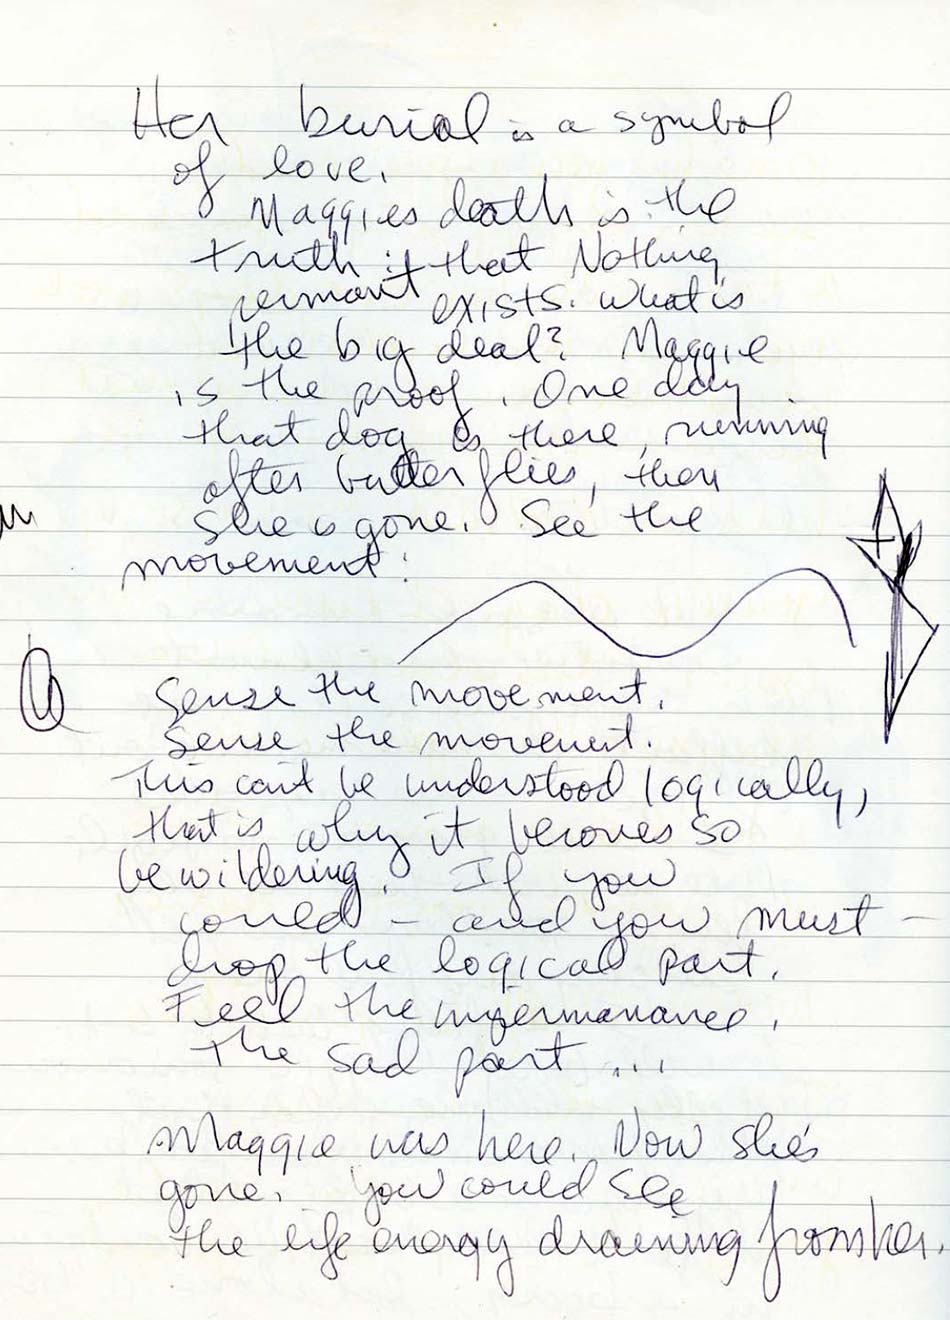 Her burial is a symbol
of love.
Maggies death is the
truth that Nothing
permant exists. What is
the big deal? Maggie
is the proof. One day
that dog is there, running
after butterflies, then
she is gone. See the
movement:
Sense the movement.
Sense the movement.
This can't be understood logically,
that is why it becomes so
bewildering. If you
could – and you must –
drop the logical part.
Feel the impermanance.
The sad part ...
Maggie was here. Now she's
gone. You could see
the life energy draining from her.